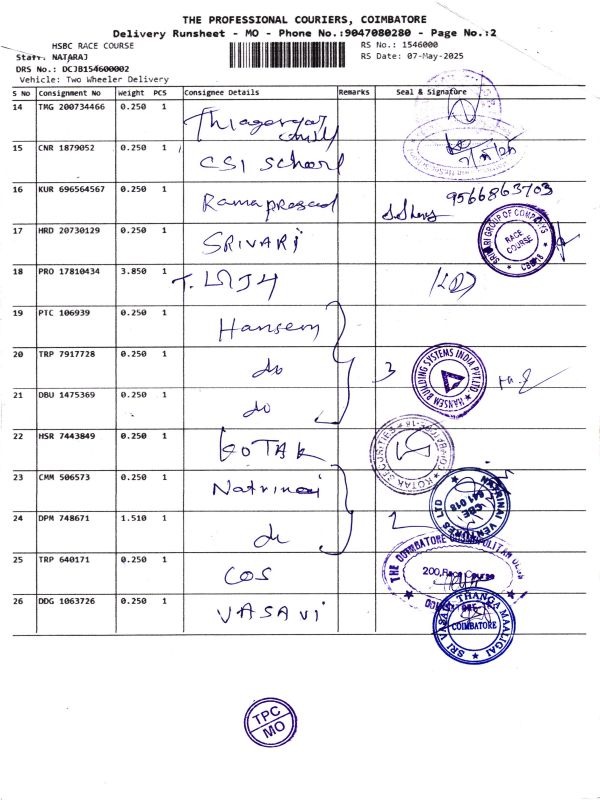 THE PROFESSIONAL COURIERS, COIMBATORE
Delivery Runsheet - MO - Phone No.:9047080280 - Page No.:2
HSBC RACE COURSE
RS No.: 1546000
Staff: NATARAJ
RS Date: 07-May-2025
DRS No.: DCJB154600002
Vehicle: Two Wheeler Delivery
S No Consignment No Weight PCS Consignee Details Remarks Seal & Signature
14 TMG 200734466 0.250 1
15 CNR 1879052 0.250 1 CSI School 7/5/25
16 KUR 696564567 0.250 1 Ramaprasad 9566863703
17 HRD 20730129 0.250 1 SRIVARI
SRIVARI GROUP OF COMPANYS RACE COURSE CBE-18
18 PRO 17810434 3.850 1
19 PTC 106939 0.250 1 Hansem
20 TRP 7917728 0.250 1 do 3
HANSEM BUILDING SYSTEMS INDIA PVT.LTD
21 DBU 1475369 0.250 1 do
22 HSR 7443849 0.250 1 KOTAK
KOTAK SECURITIES
23 CMM 506573 0.250 1 Natrinai
NATRINAI VENTURES LTD CBE 641 018
24 DPM 748671 1.510 1 do 2
25 TRP 640171 0.250 1 COS
THE COIMBATORE COSMOPOLITAN CLUB 200, Race Course COIMBATORE
26 DDG 1063726 0.250 1 VASAVI
SRI VASAVI THANGA MAALIGAI COIMBATORE
TPC MO